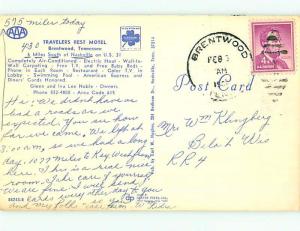 595 miles today
430
AAA
TRAVELERS REST MOTEL
Brentwood, Tennessee
6 Miles South of Nashville on U.S. 31
Completely Air-Conditioned - Electric Heat - Wall-to-
Wall Carpeting - Free T.V. and Free Baby Beds
Phone in Each Room - Restaurant - Color T.V. in
Lobby - Swimming Pool - American Express and
Diners' Cards Honored.
Glenn and Ira Lee Noble - Owners
Phone 832- - Area Code 615
Hi: We didn't have as
bad a roads as we
expected. You are how
far we came. We left at
3:00 A.M. so we had a long
day. 1077 miles to Key West from
here. This is a real nice
room. Take care of yourself.
We are fine & will send
cards every other day to you
and my folks so call them
BRENTWOOD
FEB
AM
TENN.
4¢
Post Card
Mrs Wm Klingberg
Beloit Wis
RR 4